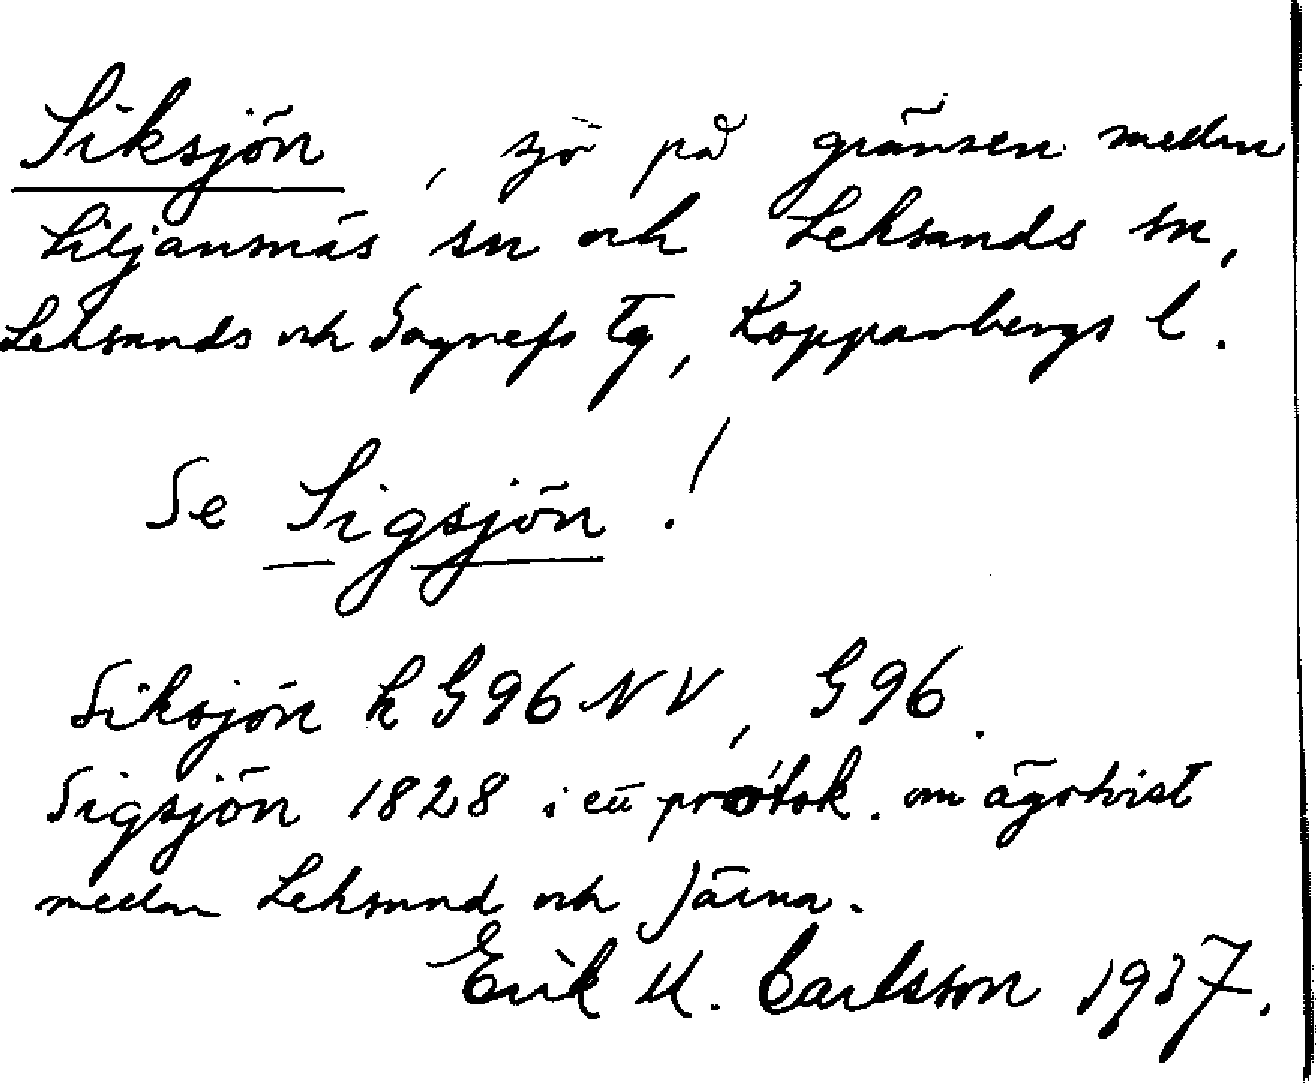 Siksjön, sjö på gränsen mellan
Siljansnäs sn och Leksands sn,
Leksands och Gagnefs tg, Kopparbergs l.
Se Sigsjön!
Siksjön k G96 NV, G96.
Sigsjön 1828 i ett protok. om ägotvist
mellan Leksand och Järna.
Erik M. Carlsson 1937.